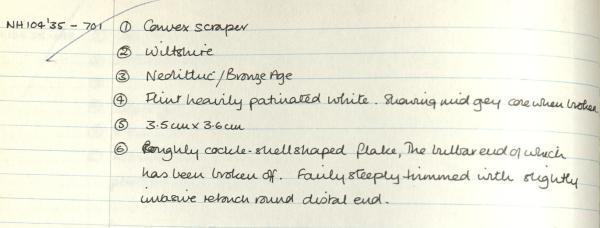 NH104'35 - 701 ① Convex scraper
② Wiltshire
③ Neolithic/Bronze Age
④ Flint heavily patinated white. Showing mid grey core when broken
⑤ 3.5cm x 3.6cm
⑥ Roughly cockle-shell shaped flake, The bulbar end of which
has been broken off. Fairly steeply trimmed with slightly
invasive retouch round distal end.